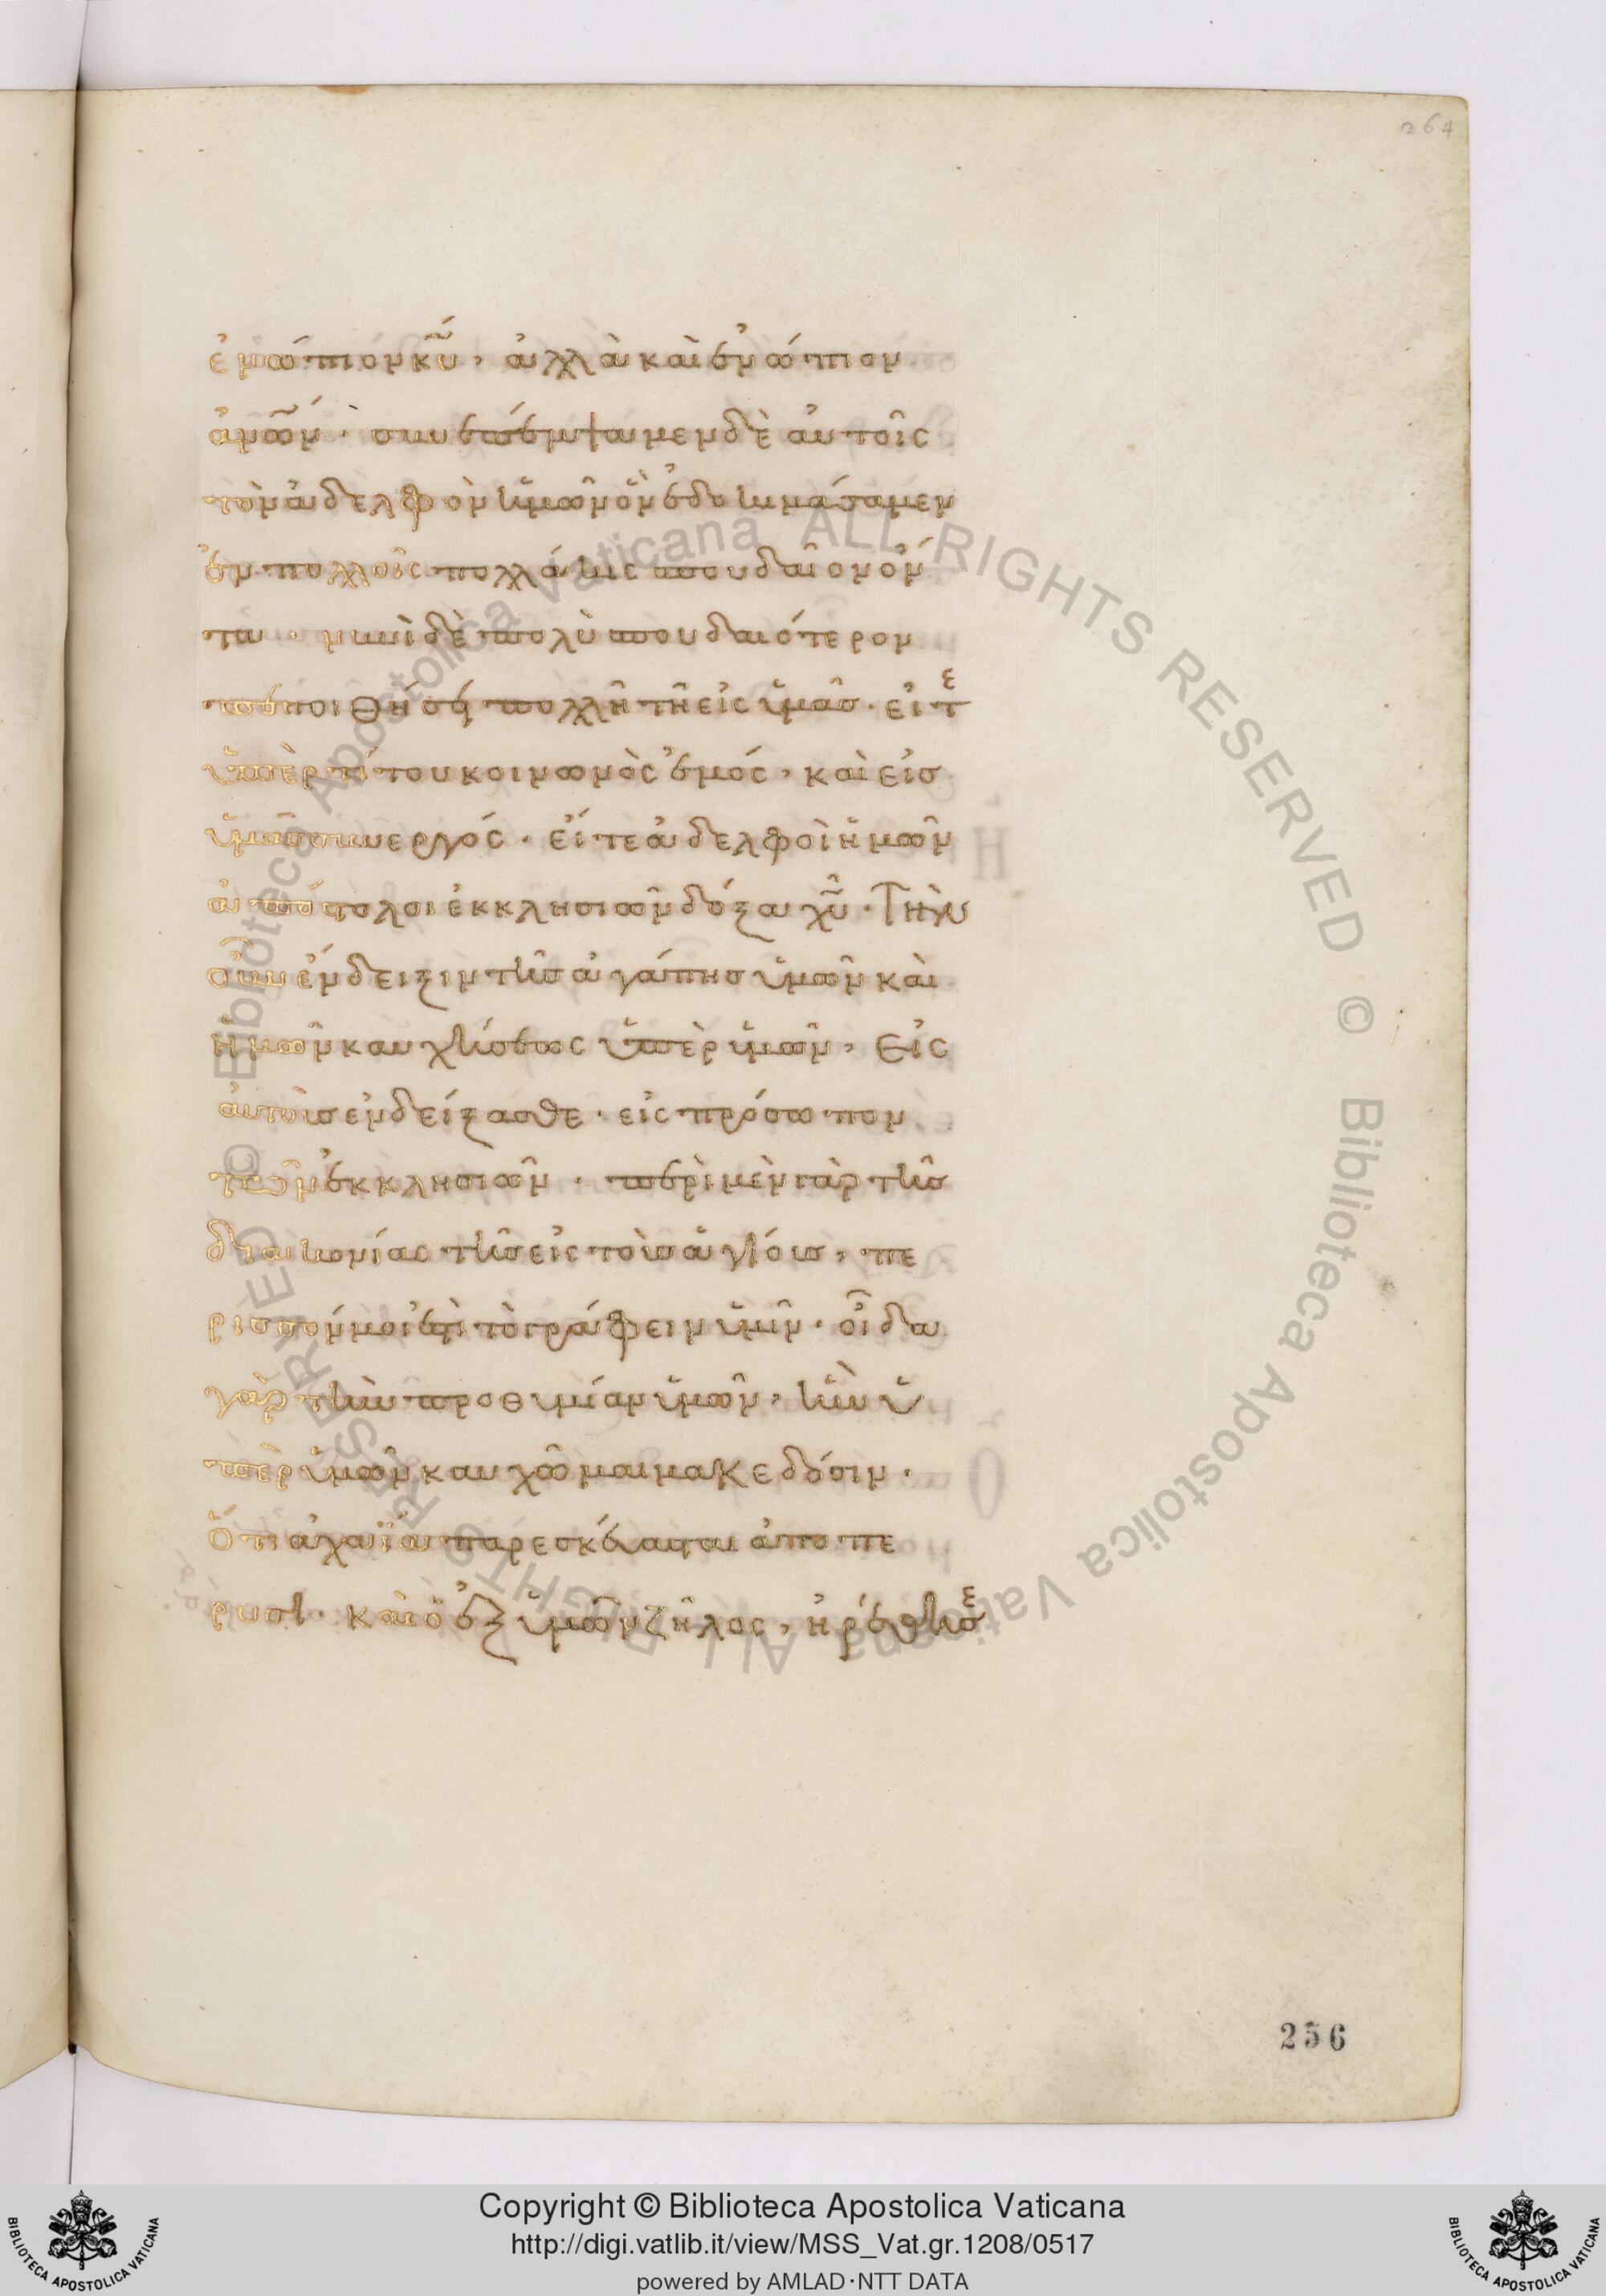 264
ἐνώπιον κ̅υ̅, ἀλλὰ καὶ ἐνώπιον
ἀν̅ω̅ν· συνεπέμψαμεν δὲ αὐτοῖς
τὸν ἀδελφὸν ἡμῶν ὃν ἐδοκιμάσαμεν
ἐν πολλοῖς πολλάκις σπουδαῖον ὄν
τα· νυνὶ δὲ πολὺ σπουδαιότερον
πεποιθήσει πολλῇ τῇ εἰς ὑμᾶς· εἴτ
ὑπὲρ τίτου κοινωνὸς ἐμός, καὶ εἰς
ὑμᾶς συνεργός· εἴτε ἀδελφοὶ ἡμῶν
ἀπόστολοι ἐκκλησιῶν δόξα χ̅υ̅· Τὴν
οὖν ἔνδειξιν τῆς ἀγάπης ὑμῶν καὶ
ἡμῶν καυχήσεως ὑπὲρ ὑμῶν, Εἰς
αὐτοὺς ἐνδείξασθε· εἰς πρόσωπον
τῶν ἐκκλησιῶν· περὶ μὲν γὰρ τῆς
διακονίας τῆς εἰς τοὺς ἁγίους, πε
ρισσόν μοι ἐστὶ τὸ γράφειν ὑμῖν· οἶδα
γὰρ τὴν προθυμίαν ὑμῶν, ἣν ὑ
πὲρ ὑμῶν καυχῶμαι μακεδόσιν·
Ὅτι ἀχαΐα παρεσκεύασται ἀπο πε
ρυσι· καὶ ὁ ἐξ ὑμῶν ζῆλος, ἠρέθισε
256
© Biblioteca Apostolica Vaticana ALL RIGHTS RESERVED © Biblioteca Apostolica Vaticana ALL RIGHTS RESERVED
Copyright © Biblioteca Apostolica Vaticana
http://digi.vatlib.it/view/MSS_Vat.gr.1208/0517
powered by AMLAD·NTT DATA
BIBLIOTECA APOSTOLICA VATICANA
BIBLIOTECA APOSTOLICA VATICANA